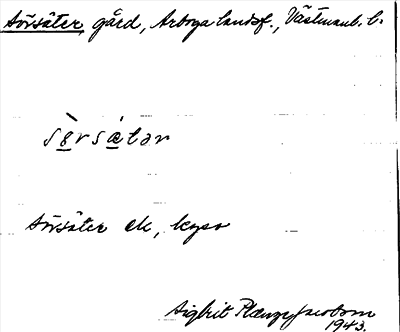 Sörsäter, gård, Arboga landsf., Västmanl. l.
sö̀rsä́tər
Sörsäter ek, kyso
Sigbrit Plænge Jacobson
1943.